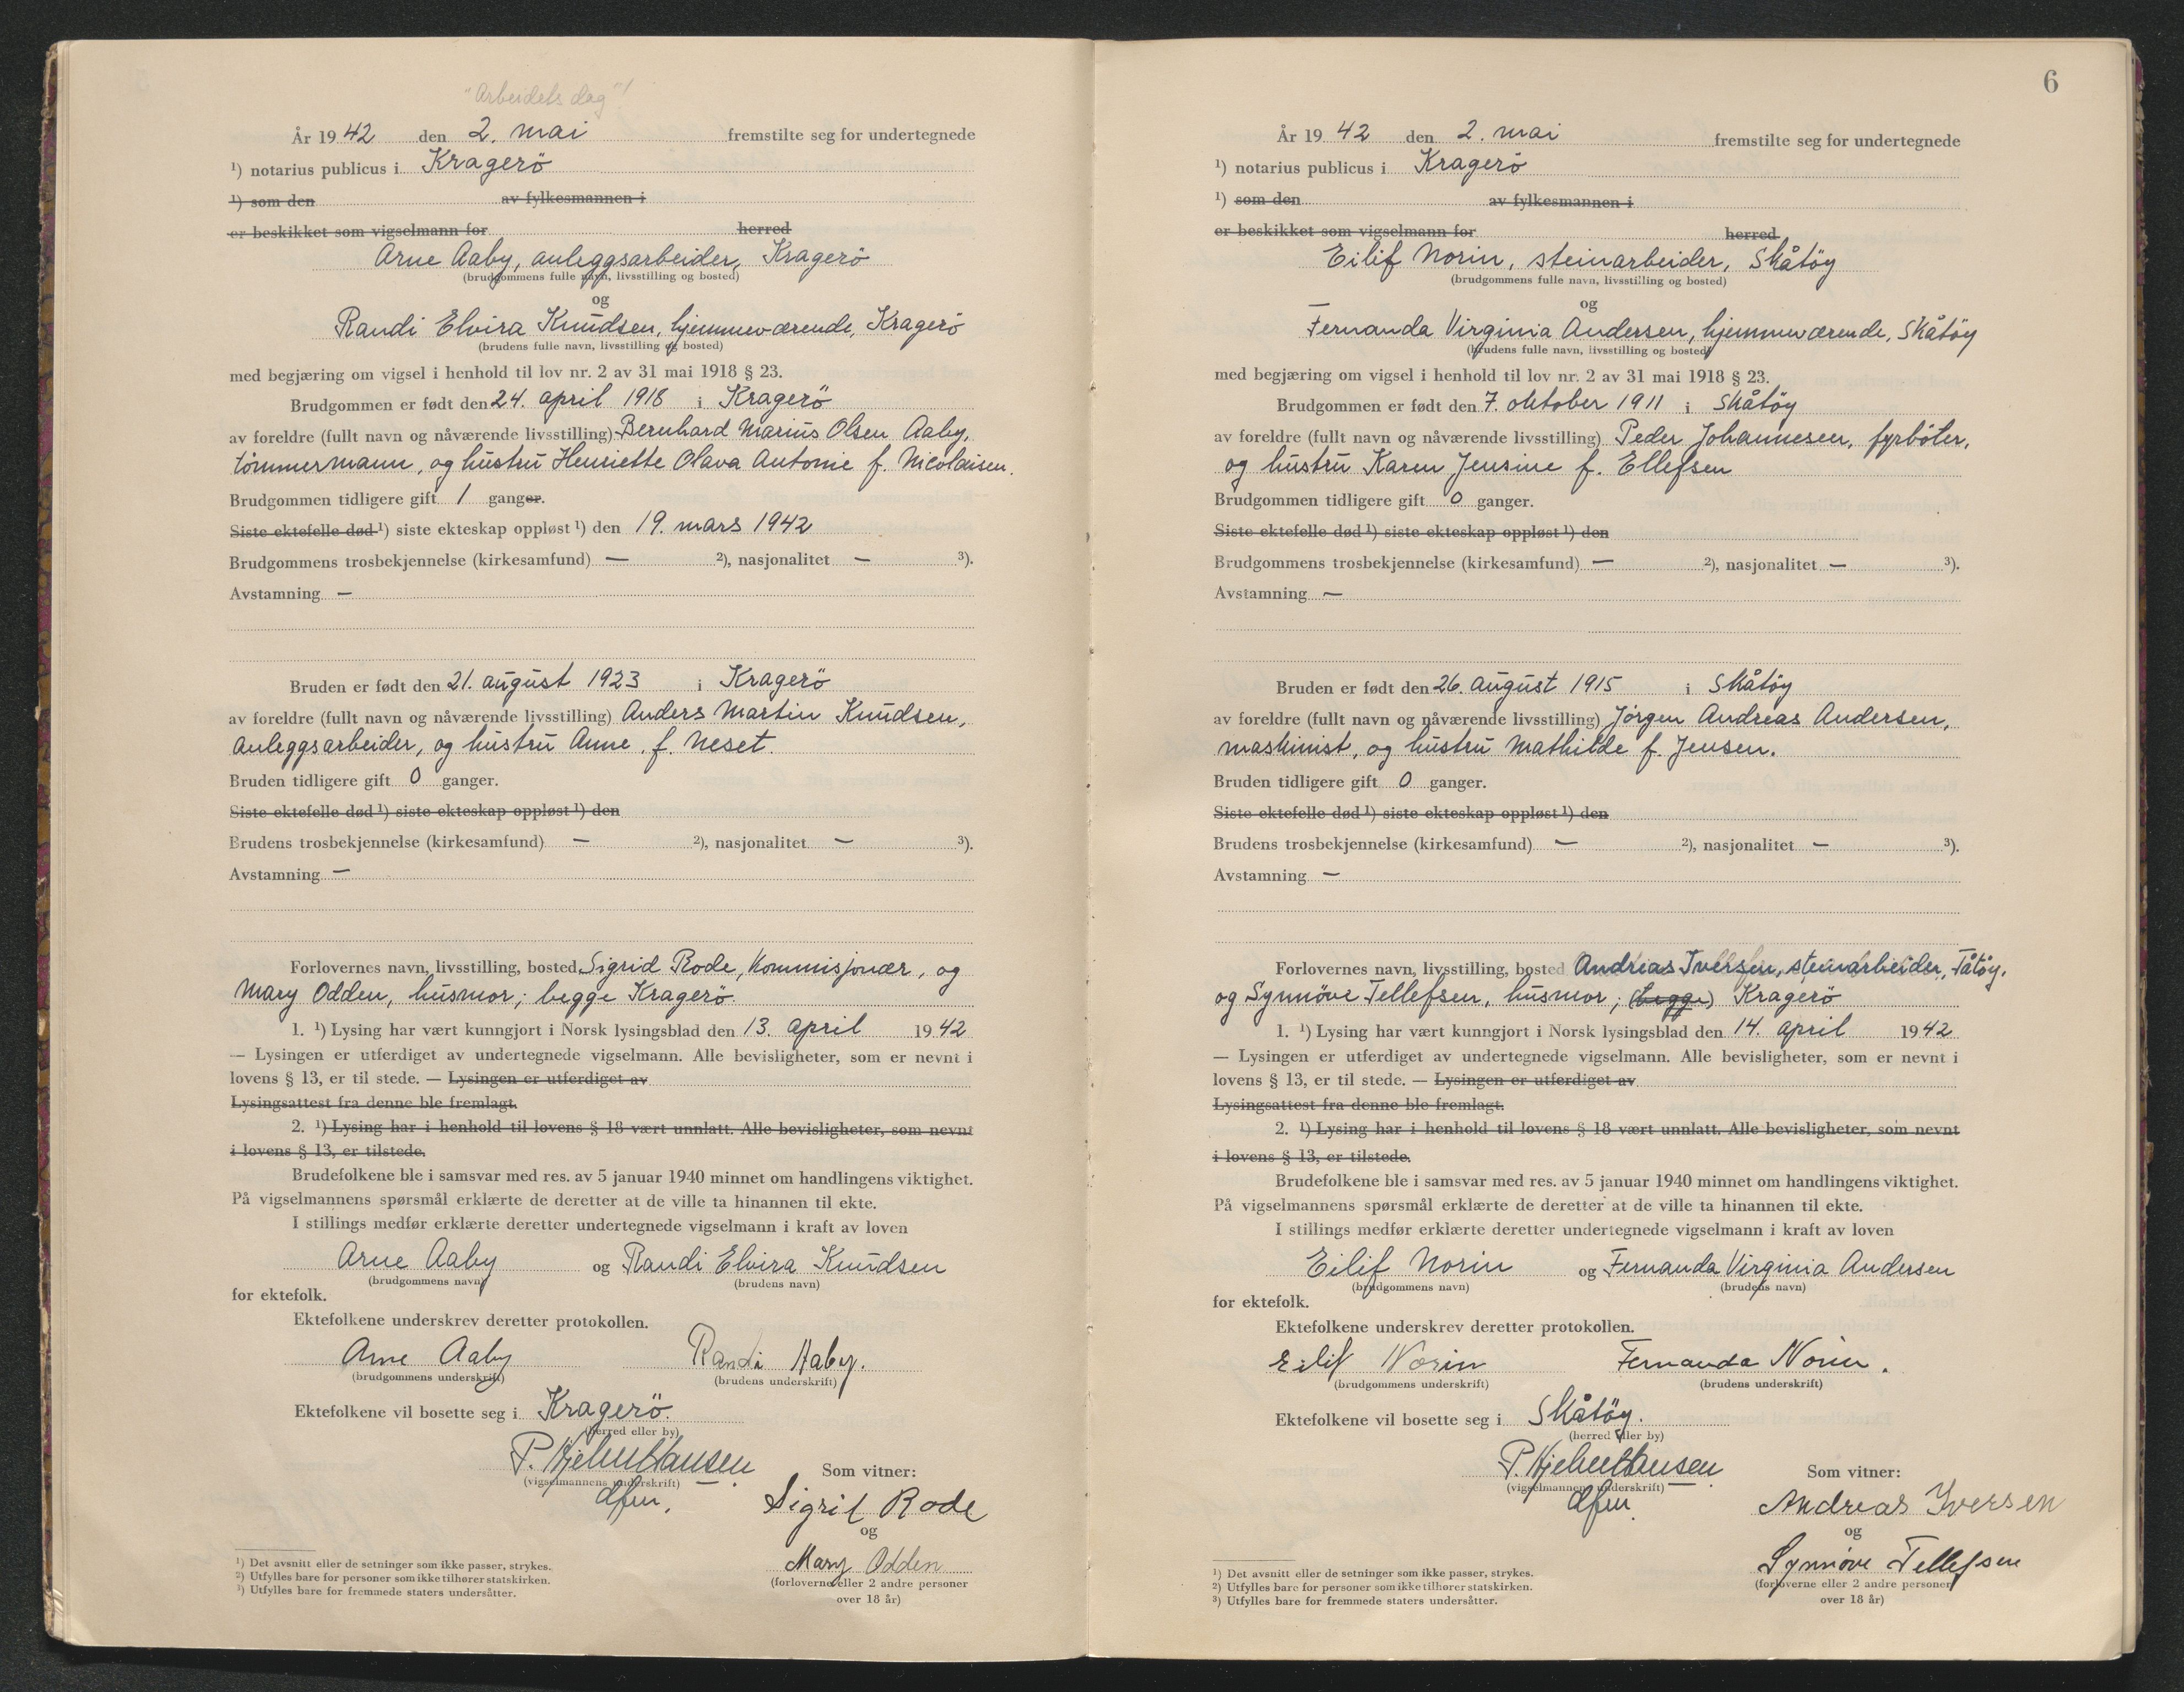 "Arbeidets dag"!
År 1942 den 2. mai fremstilte seg for undertegnede
¹) notarius publicus i Kragerö
¹) som den av fylkesmannen i
er beskikket som vigselmann for herred
Arne Aaby, anleggsarbeider, Kragerö
(brudgommens fulle navn, livsstilling og bosted)
og
Randi Elvira Knudsen, hjemmeværende, Kragerö
(brudens fulle navn, livsstilling og bosted)
med begjæring om vigsel i henhold til lov nr. 2 av 31 mai 1918 § 23.
Brudgommen er født den 24. april 1918 i Kragerö
av foreldre (fullt navn og nåværende livsstilling) Bernhard Marius Olsen Aaby,
tömmermann, og hustru Henriette Olava Antonie f. Nicolaisen.
Brudgommen tidligere gift 1 ganger.
Siste ektefelle død ¹) siste ekteskap oppløst ¹) den 19. mars 1942
Brudgommens trosbekjennelse (kirkesamfund) — ²), nasjonalitet — ³).
Avstamning —
Bruden er født den 21. august 1923 i Kragerö
av foreldre (fullt navn og nåværende livsstilling) Anders Martin Knudsen,
anleggsarbeider, og hustru Anne f. Neset.
Bruden tidligere gift 0 ganger.
Siste ektefelle død ¹) siste ekteskap oppløst ¹) den
Brudens trosbekjennelse (kirkesamfund) — ²), nasjonalitet — ³).
Avstamning —
Forlovernes navn, livsstilling, bosted Sigrid Rode, kommisjonær, og
Mary Odden, husmor; begge Kragerö.
1. ¹) Lysing har vært kunngjort i Norsk lysingsblad den 13. april 1942
— Lysingen er utferdiget av undertegnede vigselmann. Alle bevisligheter, som er nevnt i
lovens § 13, er til stede. — Lysingen er utferdiget av
Lysingsattest fra denne ble fremlagt.
2. ¹) Lysing har i henhold til lovens § 18 vært unnlatt. Alle bevisligheter, som nevnt
i lovens § 13, er tilstede.
Brudefolkene ble i samsvar med res. av 5 januar 1940 minnet om handlingens viktighet.
På vigselmannens spørsmål erklærte de deretter at de ville ta hinannen til ekte.
I stillings medfør erklærte deretter undertegnede vigselmann i kraft av loven
Arne Aaby og Randi Elvira Knudsen
(brudgommens navn) (brudens navn)
for ektefolk.
Ektefolkene underskrev deretter protokollen.
Arne Aaby Randi Aaby.
(brudgommens underskrift) (brudens underskrift)
Ektefolkene vil bosette seg i Kragerö.
(herred eller by)
P. Hjelm Hansen
(vigselmannens underskrift)
dfm.
Som vitner:
Sigrid Rode
og
Mary Odden
(forloverne eller 2 andre personer
over 18 år)
¹) Det avsnitt eller de setninger som ikke passer, strykes.
²) Utfylles bare for personer som ikke tilhører statskirken.
³) Utfylles bare for fremmede staters undersåtter.
6
År 1942 den 2. mai fremstilte seg for undertegnede
¹) notarius publicus i Kragerö
¹) som den av fylkesmannen i
er beskikket som vigselmann for herred
Eilif Norin, steinarbeider, Skåtöy
(brudgommens fulle navn, livsstilling og bosted)
og
Fernanda Virginia Andersen, hjemmeværende, Skåtöy
(brudens fulle navn, livsstilling og bosted)
med begjæring om vigsel i henhold til lov nr. 2 av 31 mai 1918 § 23.
Brudgommen er født den 7. oktober 1911 i Skåtöy
av foreldre (fullt navn og nåværende livsstilling) Peder Johannesen, fyrböter,
og hustru Karen Jensine f. Ellefsen
Brudgommen tidligere gift 0 ganger.
Siste ektefelle død ¹) siste ekteskap oppløst ¹) den
Brudgommens trosbekjennelse (kirkesamfund) — ²), nasjonalitet — ³).
Avstamning —
Bruden er født den 26. august 1915 i Skåtöy
av foreldre (fullt navn og nåværende livsstilling) Jörgen Andreas Andersen,
maskinist, og hustru Mathilde f. Jensen.
Bruden tidligere gift 0 ganger.
Siste ektefelle død ¹) siste ekteskap oppløst ¹) den
Brudens trosbekjennelse (kirkesamfund) — ²), nasjonalitet — ³).
Avstamning —
Forlovernes navn, livsstilling, bosted Andreas Iversen, steinarbeider, Tåtöy,
og Synnöve Tellefsen, husmor; (begge) Kragerö
1. ¹) Lysing har vært kunngjort i Norsk lysingsblad den 14. april 1942
— Lysingen er utferdiget av undertegnede vigselmann. Alle bevisligheter, som er nevnt i
lovens § 13, er til stede. — Lysingen er utferdiget av
Lysingsattest fra denne ble fremlagt.
2. ¹) Lysing har i henhold til lovens § 18 vært unnlatt. Alle bevisligheter, som nevnt
i lovens § 13, er tilstede.
Brudefolkene ble i samsvar med res. av 5 januar 1940 minnet om handlingens viktighet.
På vigselmannens spørsmål erklærte de deretter at de ville ta hinannen til ekte.
I stillings medfør erklærte deretter undertegnede vigselmann i kraft av loven
Eilif Norin og Fernanda Virginia Andersen
(brudgommens navn) (brudens navn)
for ektefolk.
Ektefolkene underskrev deretter protokollen.
Eilif Norin Fernanda Norin.
(brudgommens underskrift) (brudens underskrift)
Ektefolkene vil bosette seg i Skåtöy.
(herred eller by)
P. Hjelm Hansen
(vigselmannens underskrift)
dfm.
Som vitner:
Andreas Iversen
og
Synnöve Tellefsen
(forloverne eller 2 andre personer
over 18 år)
¹) Det avsnitt eller de setninger som ikke passer, strykes.
²) Utfylles bare for personer som ikke tilhører statskirken.
³) Utfylles bare for fremmede staters undersåtter.